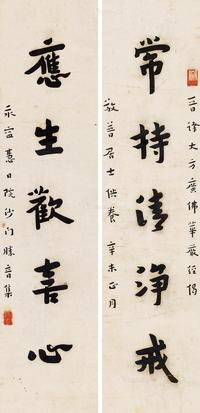 晉譯大方廣佛華嚴經偈
常持清淨戒
敬善居士供養 辛未正月
應生歡喜心
永寧慧日院沙門勝音集